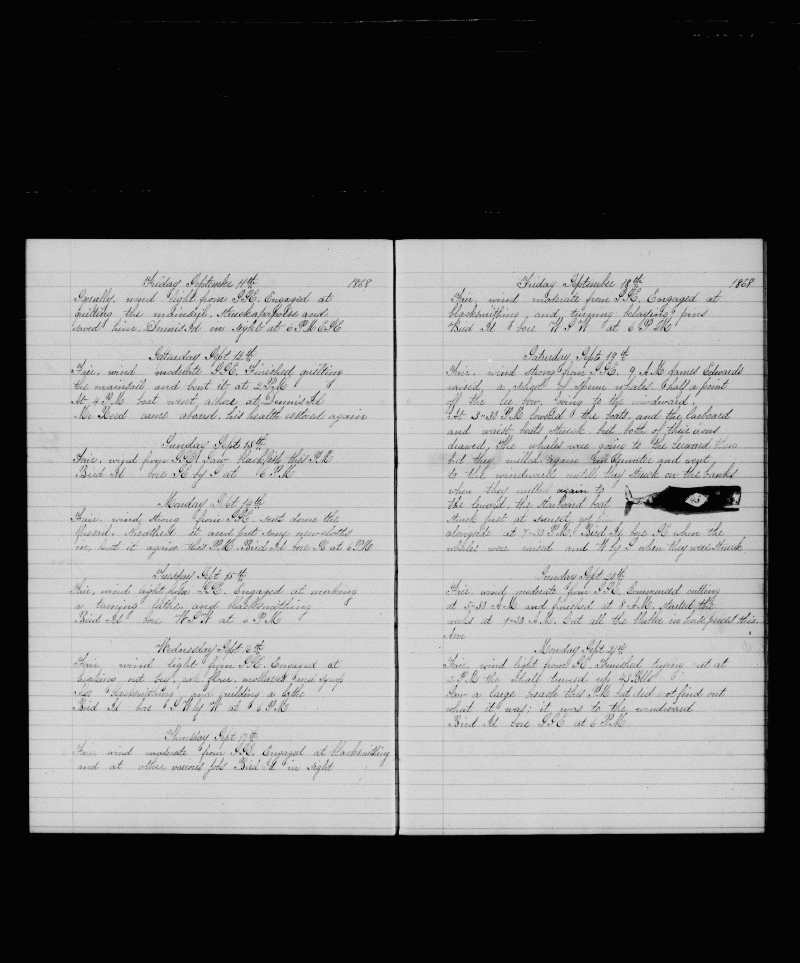 Friday September 11th 1868
Squally, wind light from SSE. Engaged at
quilting the mainsail, struck a porpoise and
saved him. Dennis Id in sight at 6 P.M. ESE
Saturday Sept 12th
Fair, wind moderate SSE. Finished quilting
the mainsail and bent it at 2 P.M
At 4 P.M boat went ashore at Dennis Id
Mr Reed came aboard, his health restored again
Sunday Sept 13th
Fair, wind from SSE. Saw blackfish this P.M
Bird Id bore SE by S at 6 P.M
Monday Sept 14th
Fair, wind strong from SSE, sent down the
and put some new cloths
in, bent it again this P.M. Bird Id bore at 6 P.M
Tuesday Sept 15th
Fair, wind light from SSE. Engaged at making
a turning lathe, and blacksmithing
Bird Id bore WSW at 6 P.M
Wednesday Sept 16th
Fair, wind light from SSE. Engaged at
breaking out beef, flour, molasses and
also blacksmithing and building a lathe
Bird Id bore SW by W at 6 P.M
Thursday Sept 17th
Fair, wind moderate from SSE. Engaged at blacksmithing
and at other various jobs Bird Id in sight
Friday September 18th 1868
Fair, wind moderate from SSE. Engaged at
blacksmithing and turning belaying pins
Bird Id bore WSW at 6 P.M
Saturday Sept 19th
Fair, wind strong from SSE. 9 A.M James Edwards
raised a shoal of sperm whales 1 half a point
off the lee bow, going to the windward
At 3-30 P.M lowered the boats, and the larboard
and waist boats struck, but both of their irons
drawed, the whales were going to the leeward then
but they milled again and went
to the windward until they struck on the banks
when they milled again to
the leward, the starboard boat
struck first at sunset, got
alongside at 7-30 P.M. Bird Id bore when the
whales were raised and W by S when they were struck.
45
Sunday Sept 20th
Fair, wind moderate from SSE. Commenced cutting
at 5-30 A.M and finished at 8 A.M, started the
works at 9-30 A.M. Cut all the blubber in horse pieces this
A.M
Monday Sept 21st
Fair, wind light from SE. Finished trying out at
2 P.M the whale turned up 45 Bbls
Saw a large this P.M but did not find out
what it was; it was to the windward
Bird Id bore SSE at 6 P.M